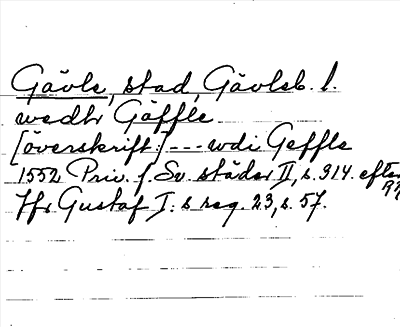 Gävle, stad, Gävleb. l.
wedtr Gäffle
[överskrift:] --- wdi Geffle
1552 Priv. f. Sv. städer II, s. 314. efter
Jfr Gustaf I:s reg. 23, s. 57.